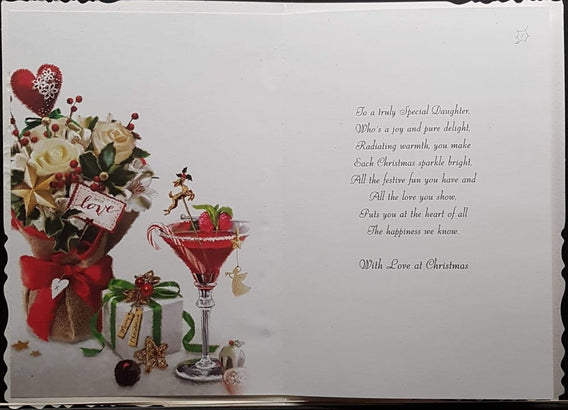 To a truly Special Daughter,
Who's a joy and pure delight,
Radiating warmth, you make
Each Christmas sparkle bright,
All the festive fun you have and
All the love you show,
Puts you at the heart of all
The happiness we know.
With Love at Christmas
love